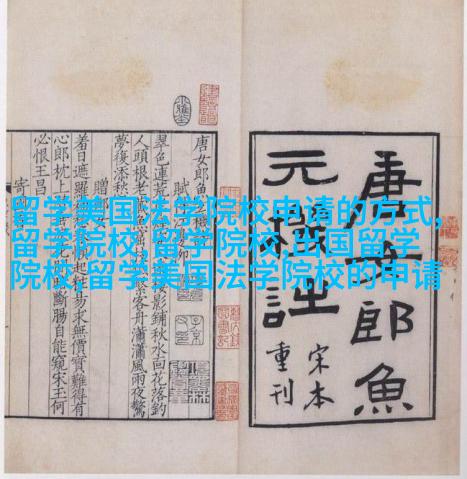 留学美国法学院校申请的方式,
留学院校,留学院校,出国留学
院校-留学美国法学院校的申请
唐女郎魚
元機詩
宋本
重刊
唐女郎魚
賦
翠色連荒影鋪秋水面花落釣
人頭根老客舟瀟瀟風雨夜驚
夢復添愁
贈鄰女
羞日遮羅起粧易求無價寶難得有
心郎枕上斷腸自能窺宋玉何
必恨王昌
寄